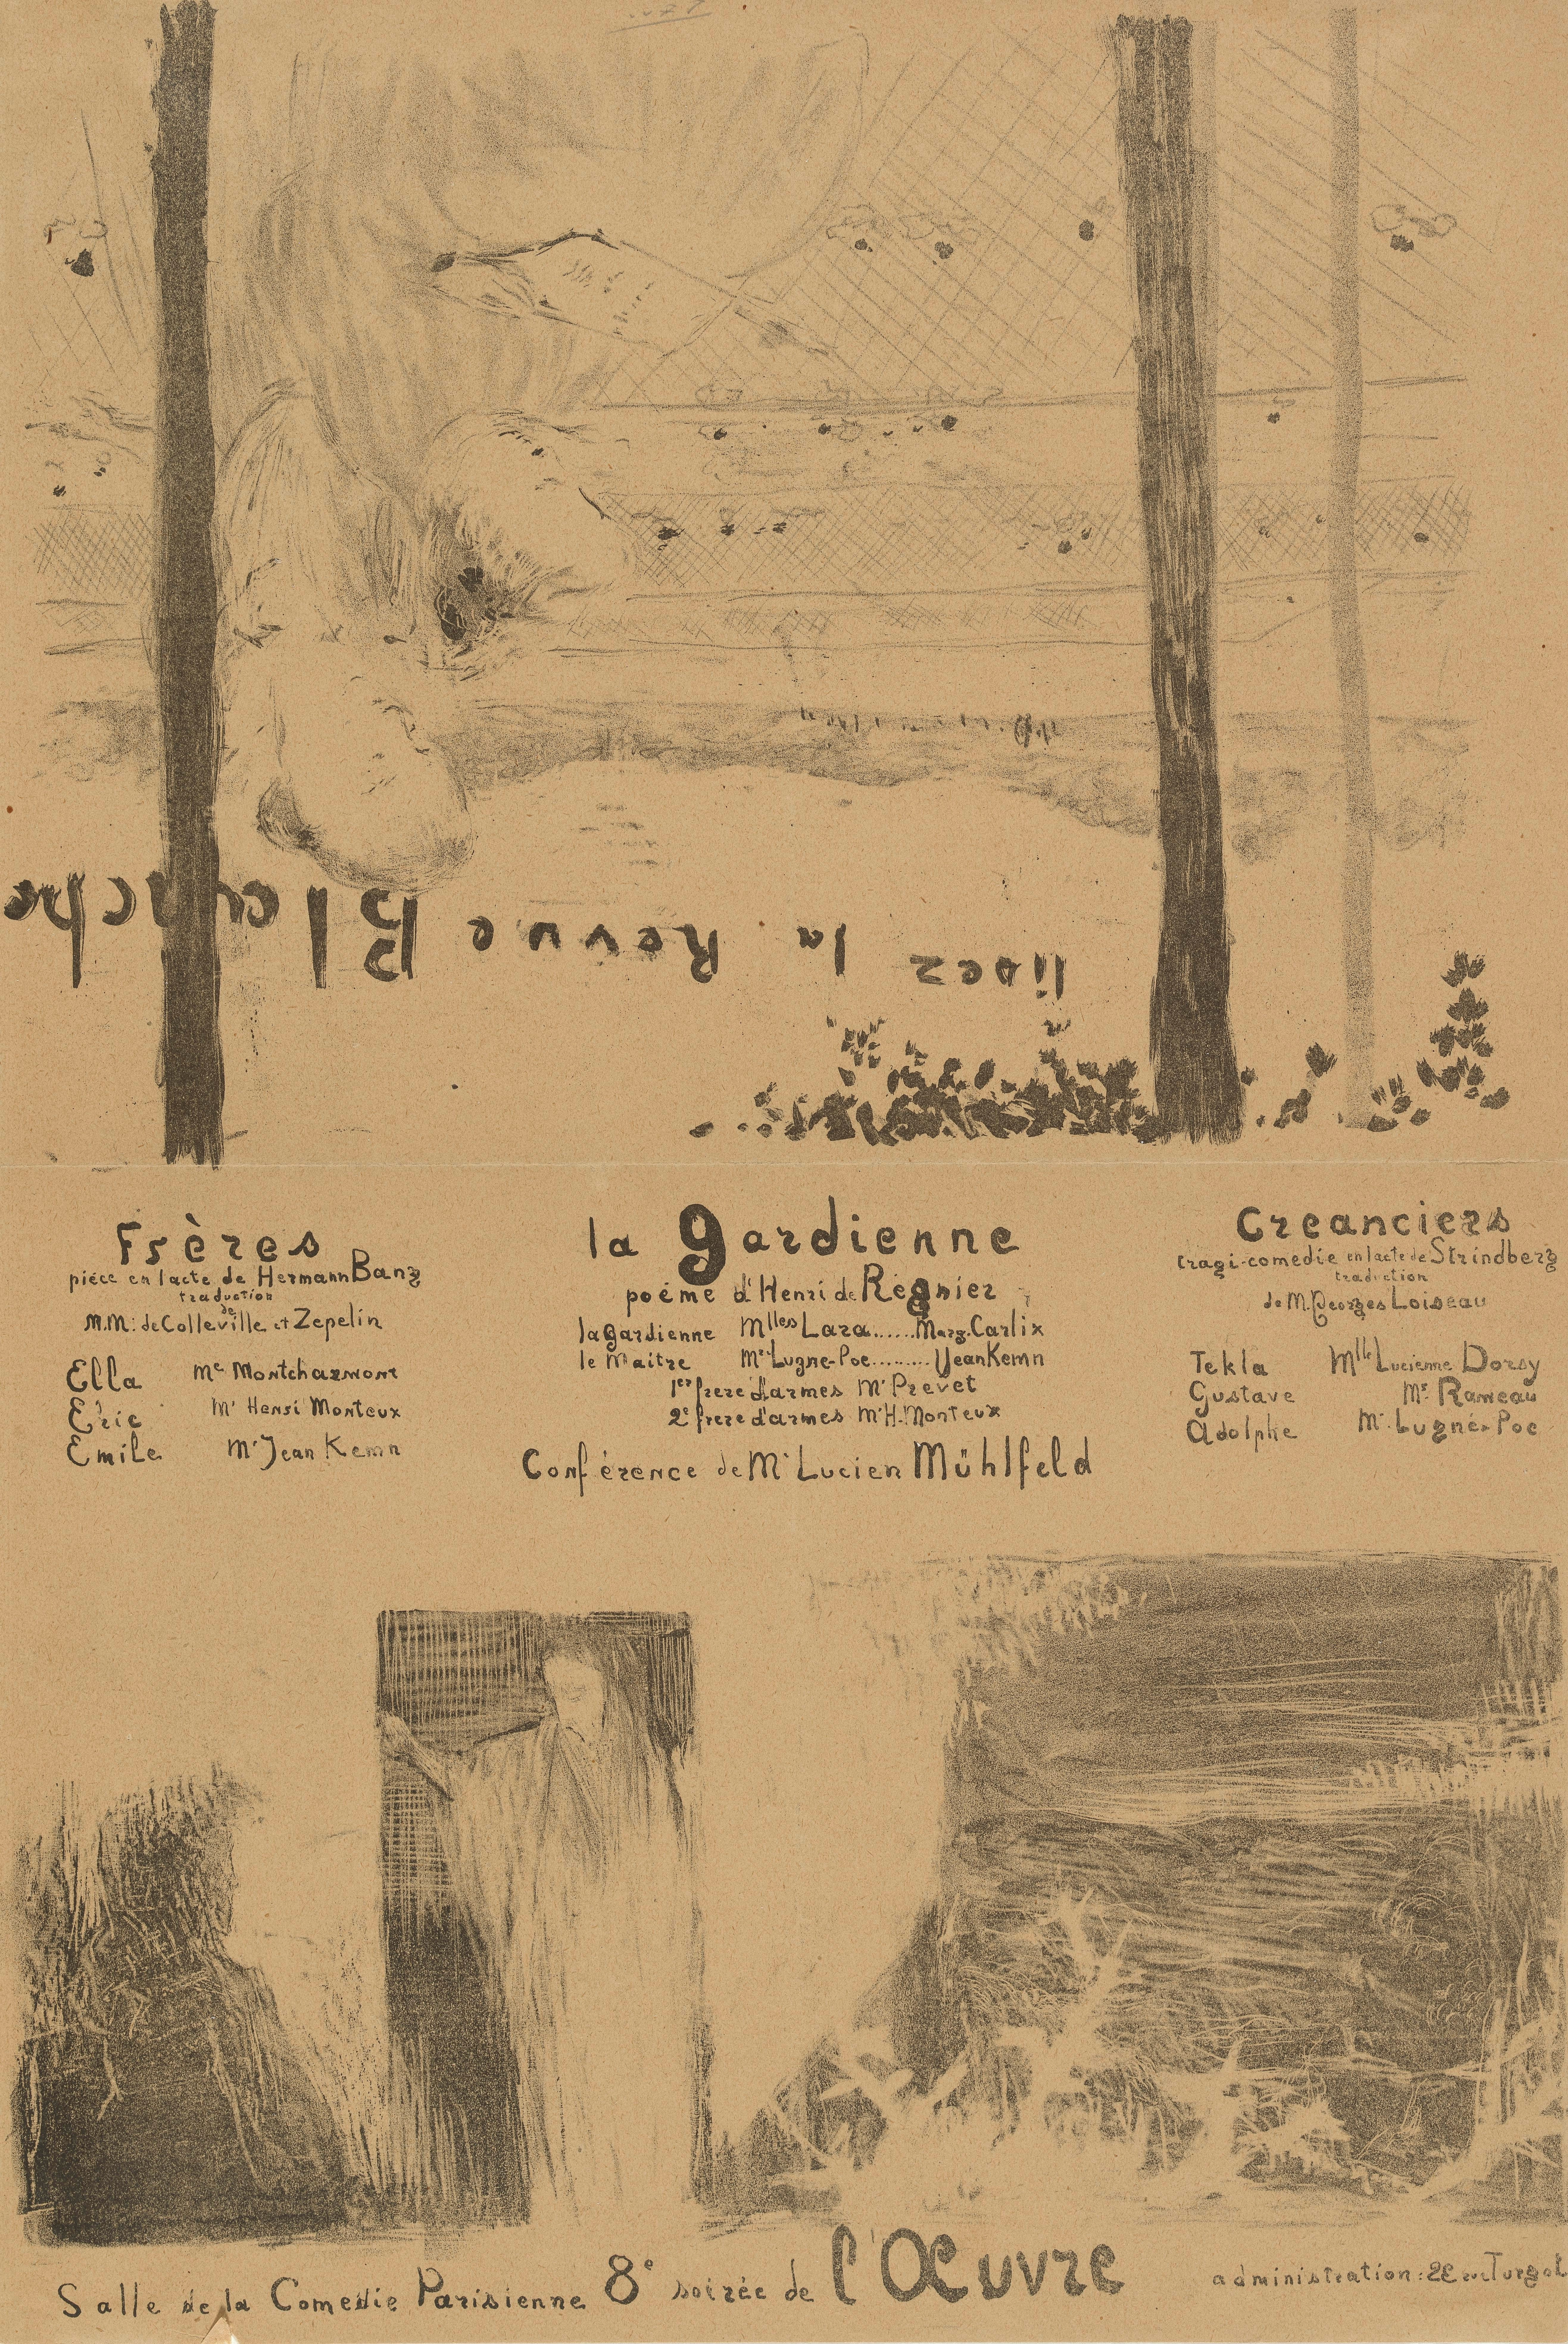 lisez la Revue Blanche
Frères
piéce en 1 acte de Hermann Bang
traduction
de
M.M: de Colleville et Zepelin
Ella Me Montcharmont
Eric Mr Henri Monteux
Emile Mr Jean Kemn
la gardienne
poéme d'Henri de Régnier
la gardienne Mlles Lara......Marg. Carlix
le Maitre Mr Lugne-Poe.........Jean Kemn
1er frere d'armes Mr Prevet
2e frere d'armes Mr H. Monteux
Conférence de Mr Lucien Mühlfeld
Creanciers
tragi-comedie en 1 acte de Strindberg
traduction
de M. Georges Loiseau
Tekla Mlle Lucienne Dorsy
Gustave Mr Rameau
Adolphe Mr Lugné-Poe
Salle de la Comedie Parisienne 8e soirée de l'Œuvre administration: 22 rue Turgot